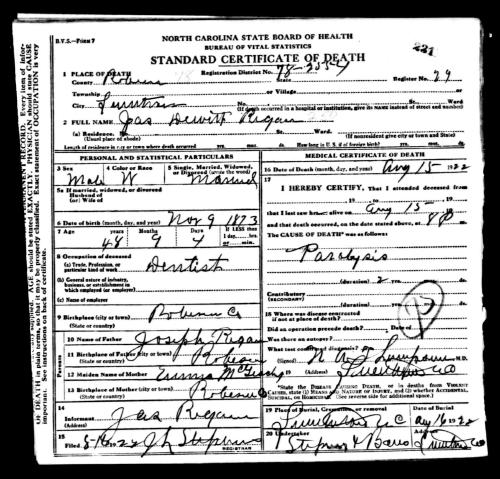 NORTH CAROLINA STATE BOARD OF HEALTH
B.V.S.—FORM 7
BUREAU OF VITAL STATISTICS
STANDARD CERTIFICATE OF DEATH
1 PLACE OF DEATH Registration District No. 78-
County Robeson State Register No. 29
Township or Village
City No. St. Ward
(If death occurred in a hospital or institution, give its name instead of street and number)
2 FULL NAME Jas Dewitt Regan
(a) Residence. No. St. Ward
(Usual place of abode) (If nonresident give city or town and State)
Length of residence in city or town where death occurred yrs. mos. ds. How long in U.S. if of foreign birth? yrs. mos. ds.
PERSONAL AND STATISTICAL PARTICULARS
3 Sex 4 Color or Race 5 Single, Married, Widowed, or Divorced (write the word)
Male W Married
5a If married, widowed, or divorced
Husband of
(or) Wife of
6 Date of birth (month, day, and year) Nov 9 1873
7 Age years Months Days If LESS than 1 day, hrs. or min.
48 9 4
8 Occupation of deceased
(a) Trade, Profession, or particular kind of work Dentist
(b) General nature of industry, business, or establishment in which employed (or employer)
(c) Name of employer
9 Birthplace (city or town) Robeson Co
(State or country)
10 Name of Father Joseph Regan
11 Birthplace of Father (city or town) Robeson
(State or country)
12 Maiden Name of Mother
13 Birthplace of Mother (city or town) Robeson Co
(State or country)
14 Informant Jas Regan
(Address)
15 Filed 1922 J L Stephens
REGISTRAR
MEDICAL CERTIFICATE OF DEATH
16 Date of Death (month, day, and year) Aug 15 1922
17 I HEREBY CERTIFY, That I attended deceased from
, 19 , to , 19
that I last saw h alive on Aug 15 , 19
and that death occurred, on the date stated above, at 8 P m.
The CAUSE OF DEATH* was as follows:
Paralysis
(duration) 2 yrs. mos. ds.
Contributory
(SECONDARY)
(duration) yrs. mos. ds.
18 Where was disease contracted
if not at place of death?
Did an operation precede death? Date of
Was there an autopsy?
What test confirmed diagnosis?
(Signed) M.D.
, 19 (Address)
*State the DISEASE CAUSING DEATH, or in deaths from VIOLENT CAUSES, state (1) MEANS AND NATURE OF INJURY, and (2) whether ACCIDENTAL, SUICIDAL, or HOMICIDAL. (See reverse side for additional space)
19 Place of Burial, Cremation, or removal Date of Burial
N C Aug 16 1922
20 Undertaker (Address)
Stephens & Barnes